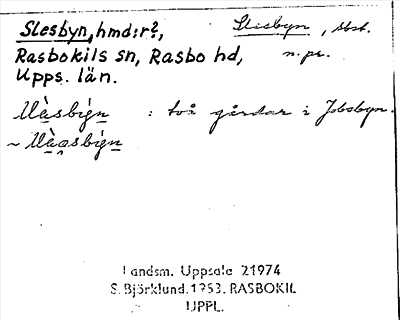 Slesbyn, hmd:r?, Slesbyn, sbst.
Rasbokils sn, Rasbo hd, n. pr.
Upps. län.
: två gårdar i Jobsbyn.
~
Landsm. Uppsala 21974
S. Björklund. 1953. RASBOKIL
UPPL.